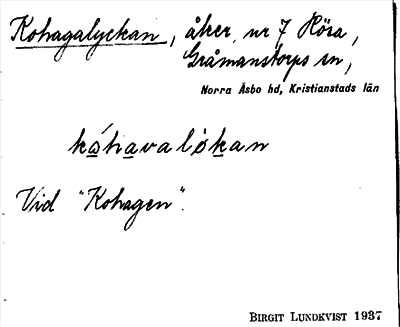 Kohagalyckan, åker, nr 7 Höra,
Gråmanstorps sn,
Norra Åsbo hd, Kristianstads län
kóhavalókan
Vid "Kohagen".
BIRGIT LUNDKVIST 1937